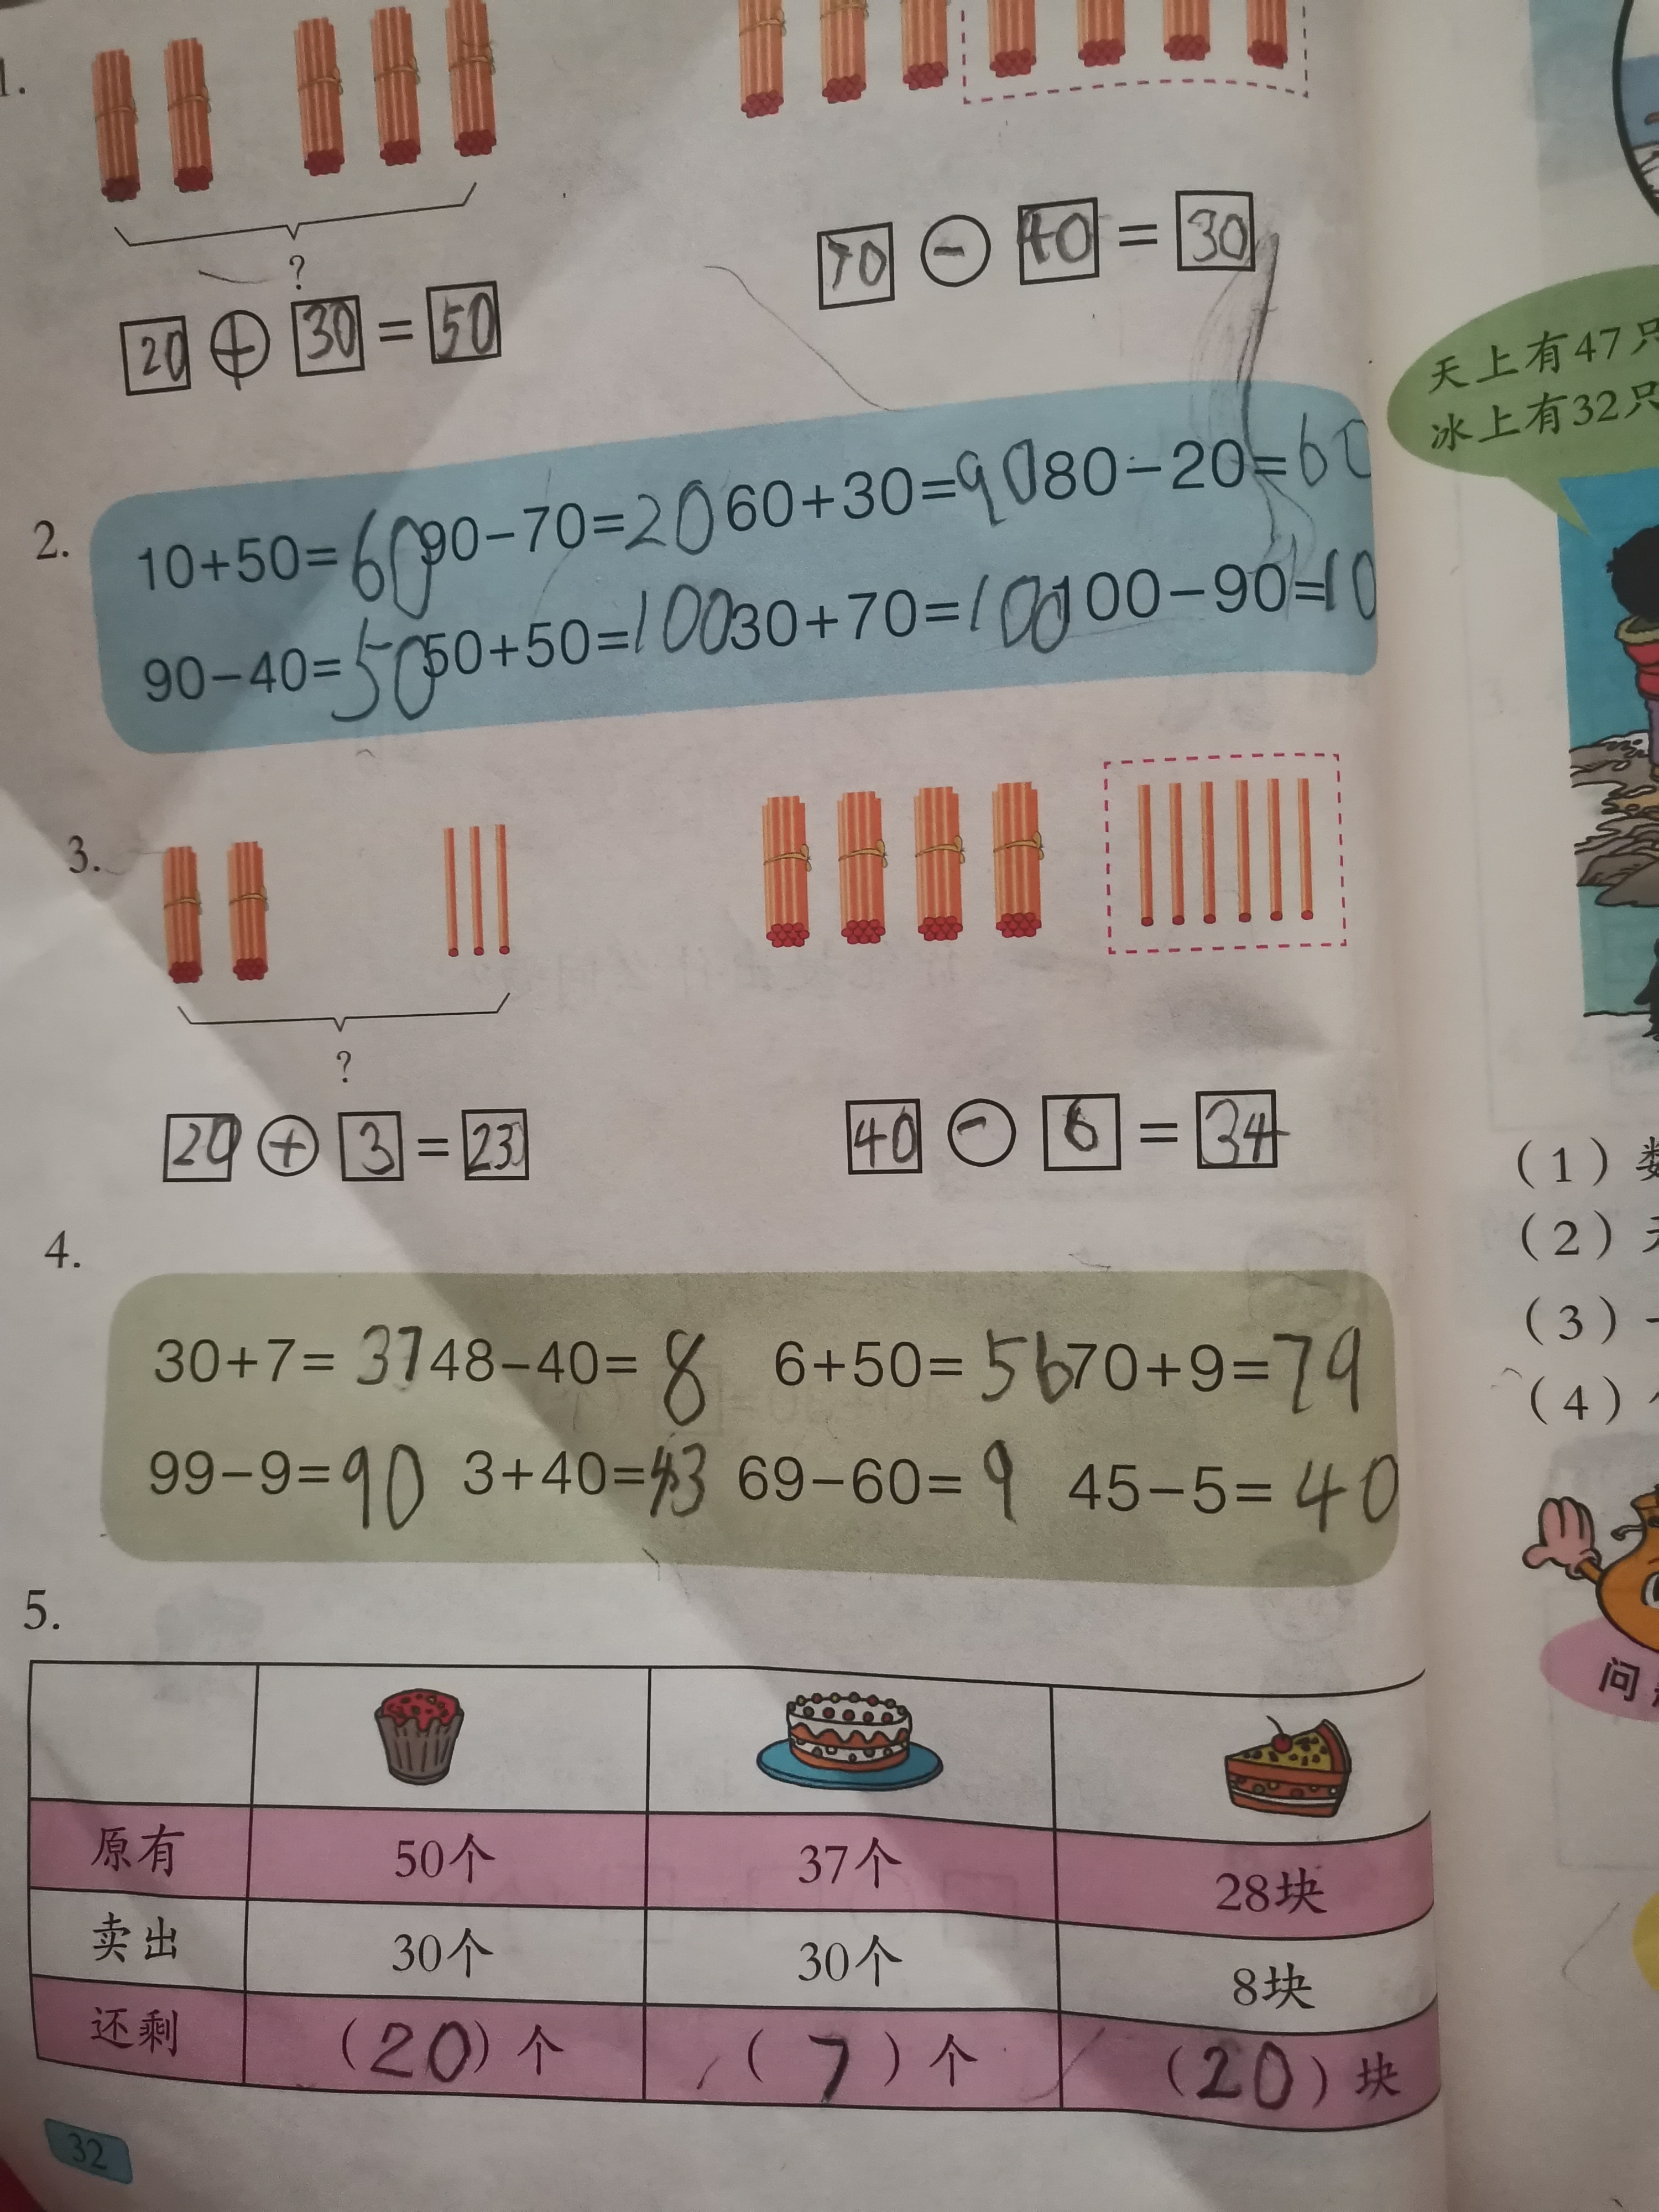 1.
?
20 + 30 = 50
70 - 40 = 30
2.
10+50=60 90-70=20 60+30=90 80-20=60
90-40=50 50+50=100 30+70=100 100-90=10
3.
?
20 + 3 = 23
40 - 6 = 34
4.
30+7=37 48-40=8 6+50=56 70+9=79
99-9=90 3+40=43 69-60=9 45-5=40
5.
原有 50个 37个 28块
卖出 30个 30个 8块
还剩 (20)个 (7)个 (20)块
32
天上有47只
冰上有32只
(1)
(2)
(3)
(4)
问